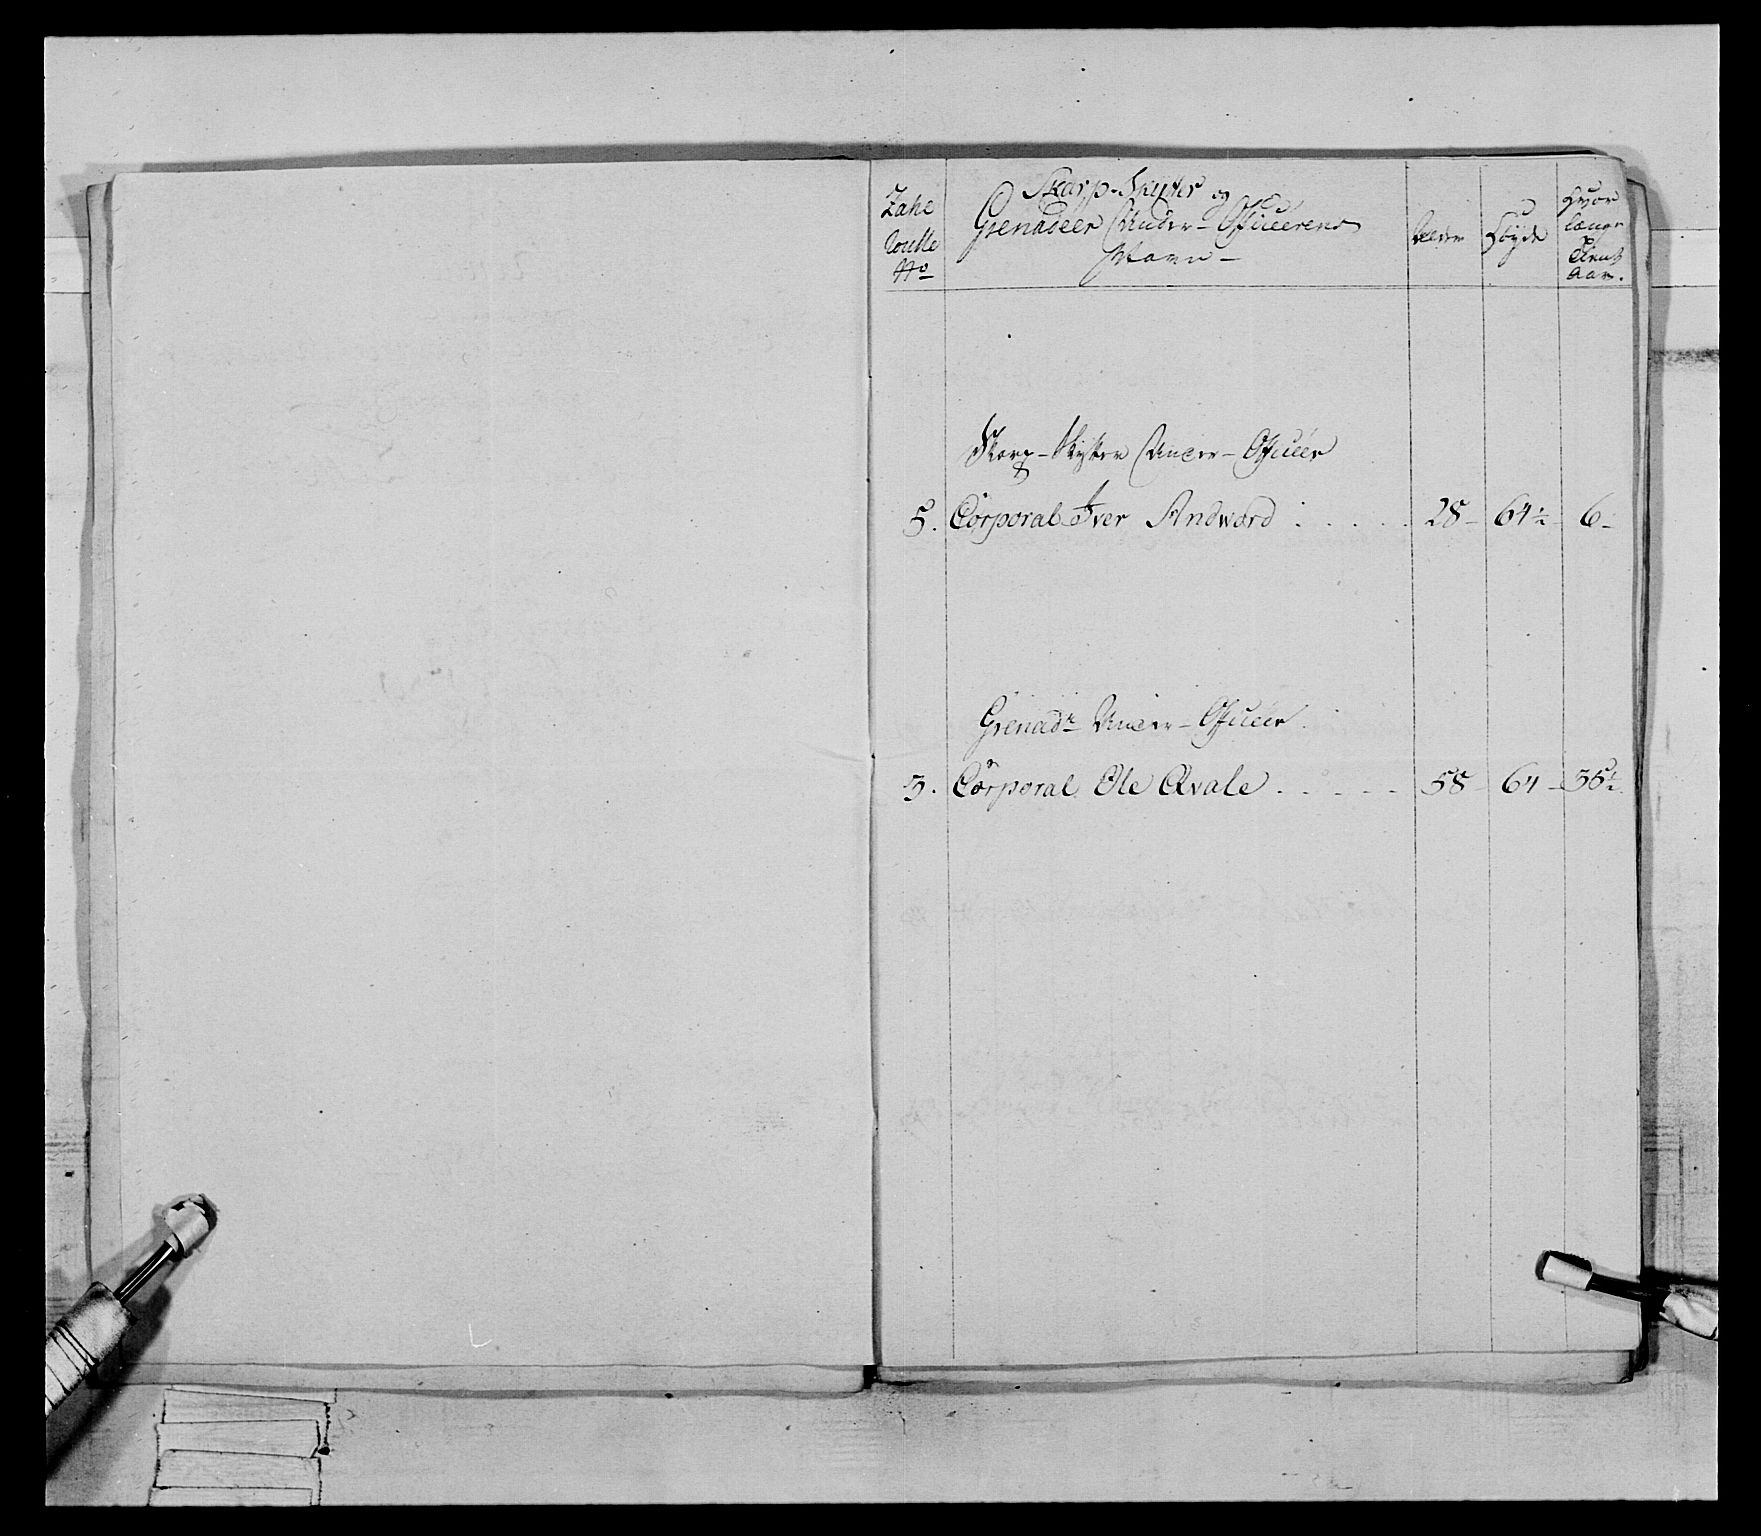 Skarp-Skytter og
Zahl Roulle No
Grenadeer Under-Officeerens
Navn -
Alder
Høyde
Hvor længe tient Aar.
Skarp-Skytter Under-Officeer
5. Corporal Iver Andword . . . . . 28 - 64½ 6 -
Grenadr Under-Officeer
3. Corporal Ole Qvale . . . . . 58 - 64 - 35½